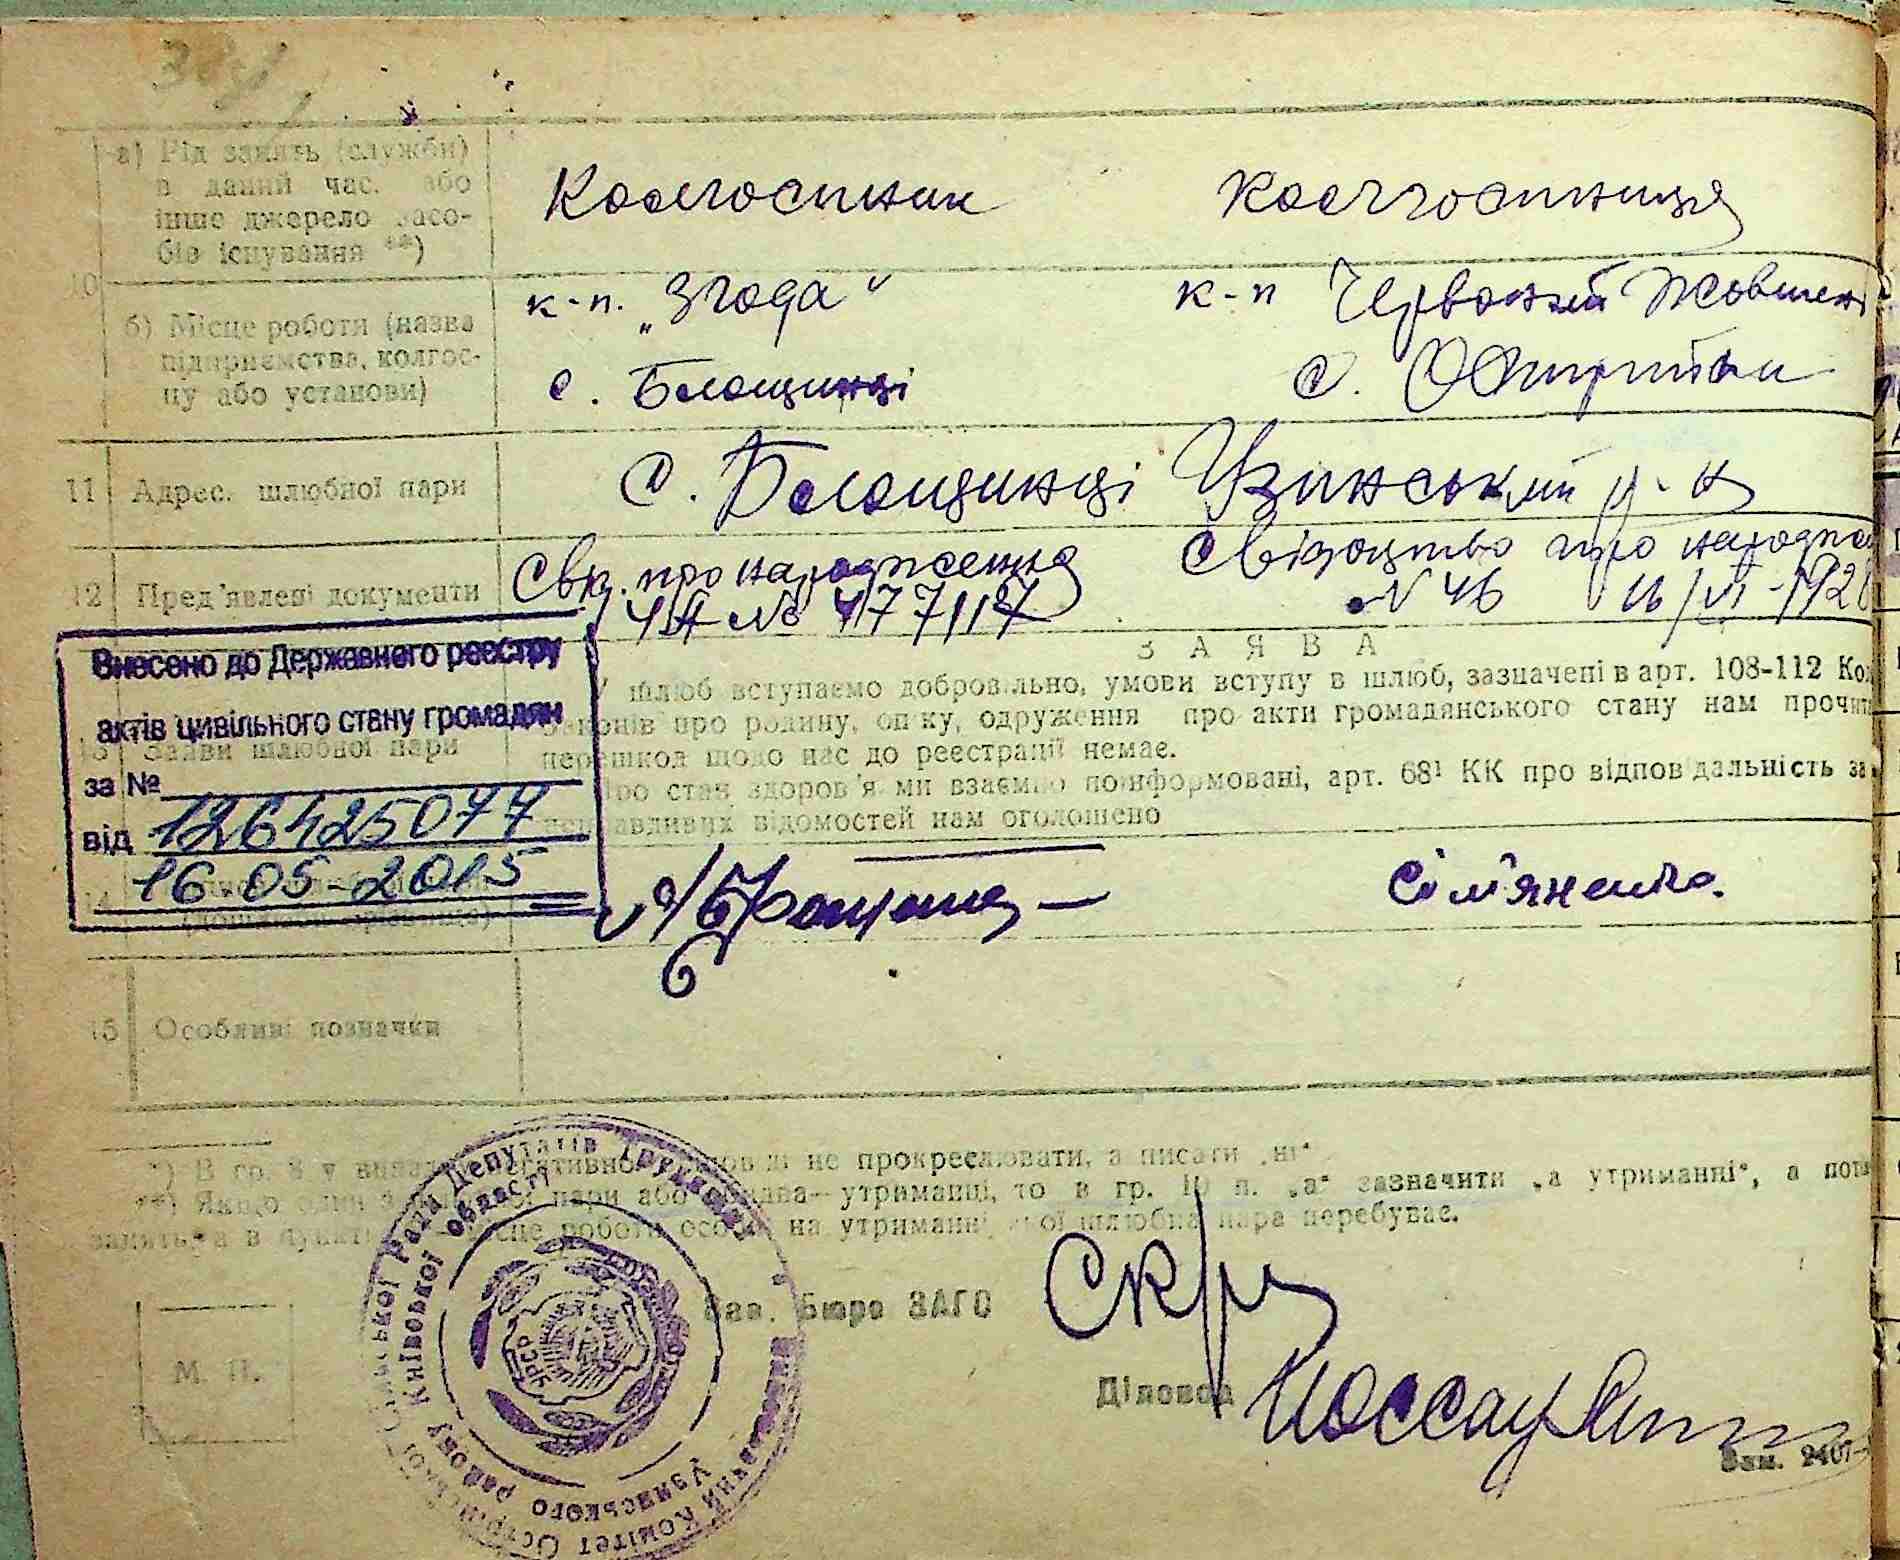 а) Рід занять (служби) в даний час. або інше джерело засобів існування **)
Колгоспник
Колгоспниця
10
б) Місце роботи (назва підприємства, колгоспу або установи)
к-п. „Згода"
к-п Червоний Жовтень
с. Блощинці
с. Острійки
11 Адрес. шлюбної пари
с. Блощинці Узинський р-н
12 Пред'явлені документи
Свід. про народження
№ 477117
Свідоцтво про народже
№ 46 16/VI-192
Внесено до Державного реєстру
актів цивільного стану громадян
за №
від 126425077
16.05-2015
З А Я В А
шлюб вступаємо добровільно, умови вступу в шлюб, зазначені в арт. 108-112 Ко
законів про родину, опіку, одруження про акти громадянського стану нам прочит
перешкод щодо нас до реєстрації немає.
Про стан здоров'я ми взаємно поінформовані, арт. 68¹ КК про відповідальність за
неправдивих відомостей нам оголошено
13 Заяви шлюбної пари
14
Сім'яненко.
15 Особливі позначки
*) В гр. 8 у випадку негативної відповіді не прокреслювати, а писати „ні"
**) Якщо один з шлюбної пари або обидва— утриманці, то в гр. 10 п. „а" зазначити „а утриманні", а
місце роботи особи на утриманні якої шлюбна пара перебуває.
Виконавчий Комітет Острійківської Сільської Ради Депутатів Трудящих
Узинського району Київської області
УРСР
М. П.
Зав. Бюро ЗАГС
Діловод
Зам. 2407-